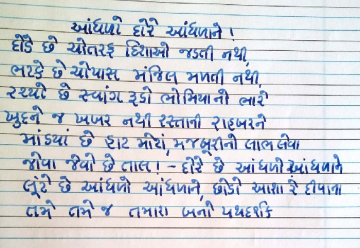 આંધળો દોરે આંધળાને !
દોડે છે ચોતરફ દિશાઓ જડતી નથી,
ભટકે છે ચોપાસ મંજિલ મળતી નથી,
રચ્યો છે સ્વાંગ રૂડો ભોમિયાનો ભારે
ખુદને જ ખબર નથી રસ્તાની રાહબરને
માંડયાં છે હાટ મોટાં, મજબુરીનો લાભ લેવા
જોવા જેવો છે તાલ ! - દોરે છે આંધળો આંધળાને
લૂંટે છે આંધળો આંધળાને, છોડો આશા રે દીવાના
તમે તમે જ તમારા બનો પથદર્શક